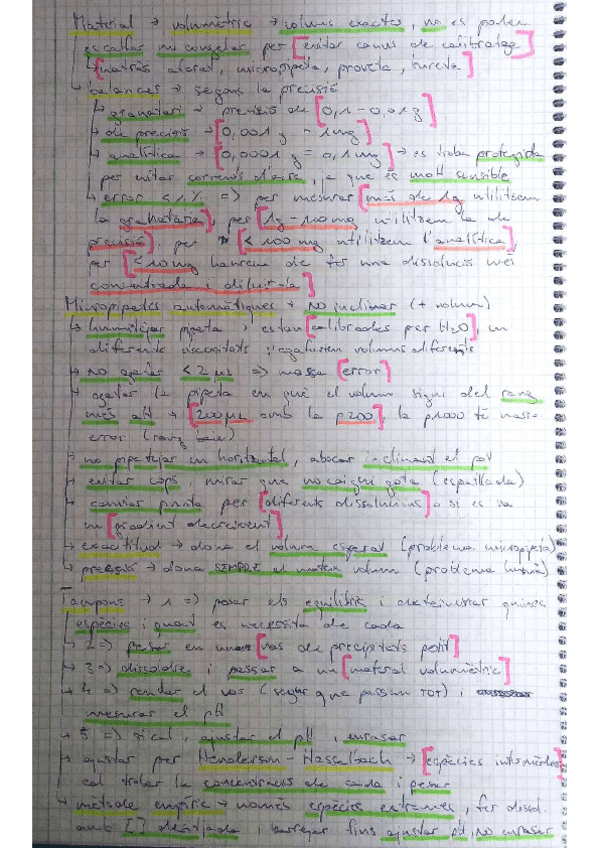 Material → volumètric → volums exactes, no es poden
escalfar ni congelar per [evitar canvis de calibratge]
[matràs aforat, micropipeta, proveta, bureta]
balances → segons la precisió
granatari → precisió de [0,1 - 0,01g]
de precisió → [0,001 g = 1mg]
analítica → [0,0001 g = 0,1 mg] → es troba protegida
per evitar corrents d'aire, ja que és molt sensible
error < 1% => per mesurar [més de 1g utilitzem
la granataria], per [1g - 100 mg utilitzem la de
precisió], per [< 100 mg utilitzem l'analítica],
per [< 10 mg haurem de fer una dissolució més
concentrada i diluir-la]
Micropipetes automàtiques → NO inclinar (+ volum)
humitejar pipeta, estan [calibrades per H2O], en
diferents viscositats s'agafarien volums diferents
no agafar < 2 µL => massa [error]
agafar la pipeta en què el volum sigui del rang
més alt → [200 µL amb la p200], la p1000 té més
error (rang baix)
no pipetejar en horitzontal, abocar inclinant el pot
evitar cops, mirar que no caigui gota (espatllada)
canviar punta per [diferents dissolucions] o si es fa
un [gradient decreixent]
exactitud → dona el volum esperat (problema micropipeta)
precisió → dona SEMPRE el mateix volum (problema humà)
Tampons → 1 => posar els equilibris i determinar quines
espècies i quant es necessita de cada
2 => pesar en un [vas de precipitats petit]
3 => dissoldre i passar a un [material volumètric]
4 => rentar el vas (segur que passem TOT) i
mesurar el pH
5 => si cal, ajustar el pH i enrasar
ajustar per Henderson-Hasselbach → [espècies intermèdies]
cal trobar la concentració de cada i pesar
mètode empíric → només espècies extremes, fer dissol.
amb [] desitjada i barrejar fins ajustar pH, no enrasar